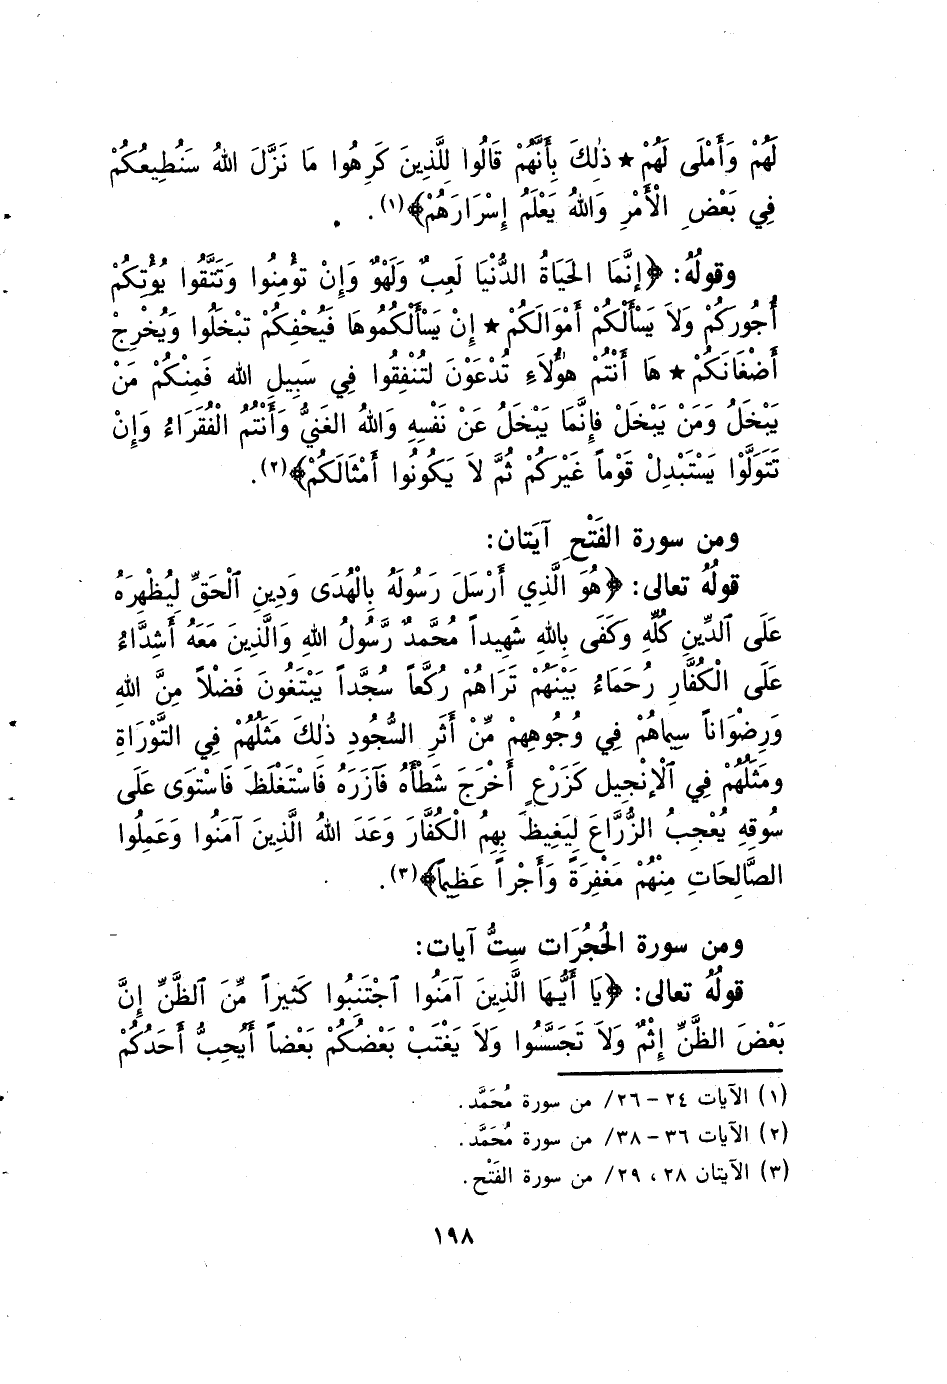 لَهُمْ وَأَمْلَى لَهُمْ ★ ذٰلِكَ بِأَنَّهُمْ قَالُوا لِلَّذِينَ كَرِهُوا مَا نَزَّلَ اللهُ سَنُطِيعُكُمْ
فِي بَعْضِ الْأَمْرِ وَاللهُ يَعْلَمُ إِسْرَارَهُمْ﴾(١).
وقولُهُ: ﴿إنَّمَا الحَيَاةُ الدُّنْيَا لَعِبٌ وَلَهْوٌ وَإِنْ تؤْمِنُوا وَتَتَّقُوا يُؤْتِكُمْ
أُجُورَكُمْ وَلَا يَسْأَلْكُمْ أَمْوَالَكُمْ ★ إِنْ يَسْأَلْكُمُوهَا فَيُحْفِكُمْ تَبْخَلُوا وَيُخْرِجْ
أَضْغَانَكُمْ ★ هَا أَنْتُمْ هٰؤُلَاءِ تُدْعَوْنَ لتُنْفِقُوا فِي سَبِيلِ الله فَمِنْكُمْ مَنْ
يَبْخَلُ وَمَنْ يَبْخَلْ فإِنَّمَا يَبْخَلُ عَنْ نَفْسِهِ وَاللهُ الغَنِيُّ وَأَنْتُمُ الْفُقَرَاءُ وَإِنْ
تَتَوَلَّوْا يَسْتَبْدِلْ قَوْماً غَيْرَكُمْ ثُمَّ لاَ يَكُونُوا أَمْثَالَكُمْ﴾(٢).
ومن سورة الفَتْحِ آيَتان:
قولُهُ تعالى: ﴿هُوَ الَّذِي أَرْسَلَ رَسُولَهُ بِالْهُدَى وَدِينِ ٱلْحَقِّ لِيُظْهِرَهُ
عَلَى ٱلدِّينِ كُلِّهِ وَكَفَى بِاللهِ شَهِيداً مُحَمَّدٌ رَّسُولُ اللهِ وَالَّذِينَ مَعَهُ أَشِدَّاءُ
عَلَى الْكُفَّارِ رُحَمَاءُ بَيْنَهُمْ تَرَاهُمْ رُكَّعاً سُجَّداً يَبْتَغُونَ فَضْلاً مِنَّ اللهِ
وَرِضْوَاناً سِيمَاهُمْ فِي وُجُوهِهِمْ مِّنْ أَثَرِ السُّجُودِ ذٰلِكَ مَثَلُهُمْ فِي التَّوْرَاةِ
ومَثَلُهُمْ فِي ٱلْإنْجِيل كَزَرْعٍ أَخْرَجَ شَطْأَهُ فَآزَرَهُ فَاسْتَغْلَظَ فَاسْتَوَى عَلَى
سُوقِهِ يُعْجِبُ الزُّرَّاعَ لِيَغِيظَ بِهِمُ الْكُفَّارَ وَعَدَ اللهُ الَّذِينَ آمَنُوا وَعَمِلُوا
الصَّالِحَاتِ مِنْهُمْ مَغْفِرَةً وَأَجْراً عَظِيماً﴾(٣).
ومن سورة الحُجُرَات سِتُّ آيات:
قولُهُ تعالى: ﴿يَا أَيُّهَا الَّذِينَ آمَنُوا ٱجْتَنِبُوا كَثيراً مِّنَ ٱلظَّنِّ إِنَّ
بَعْضَ الظَّنِّ إِثْمٌ وَلَا تَجَسَّسُوا وَلَا يَغْتَبْ بَعْضُكُمْ بَعْضاً أَيُحِبُّ أَحَدُكُمْ
(١) الآيات ٢٤ - ٢٦/ من سورة مُحَمَّد.
(٢) الآيات ٣٦ - ٣٨/ من سورة مُحَمَّد.
(٣) الآيتان ٢٨ ، ٢٩/ من سورة الفَتْح.
١٩٨